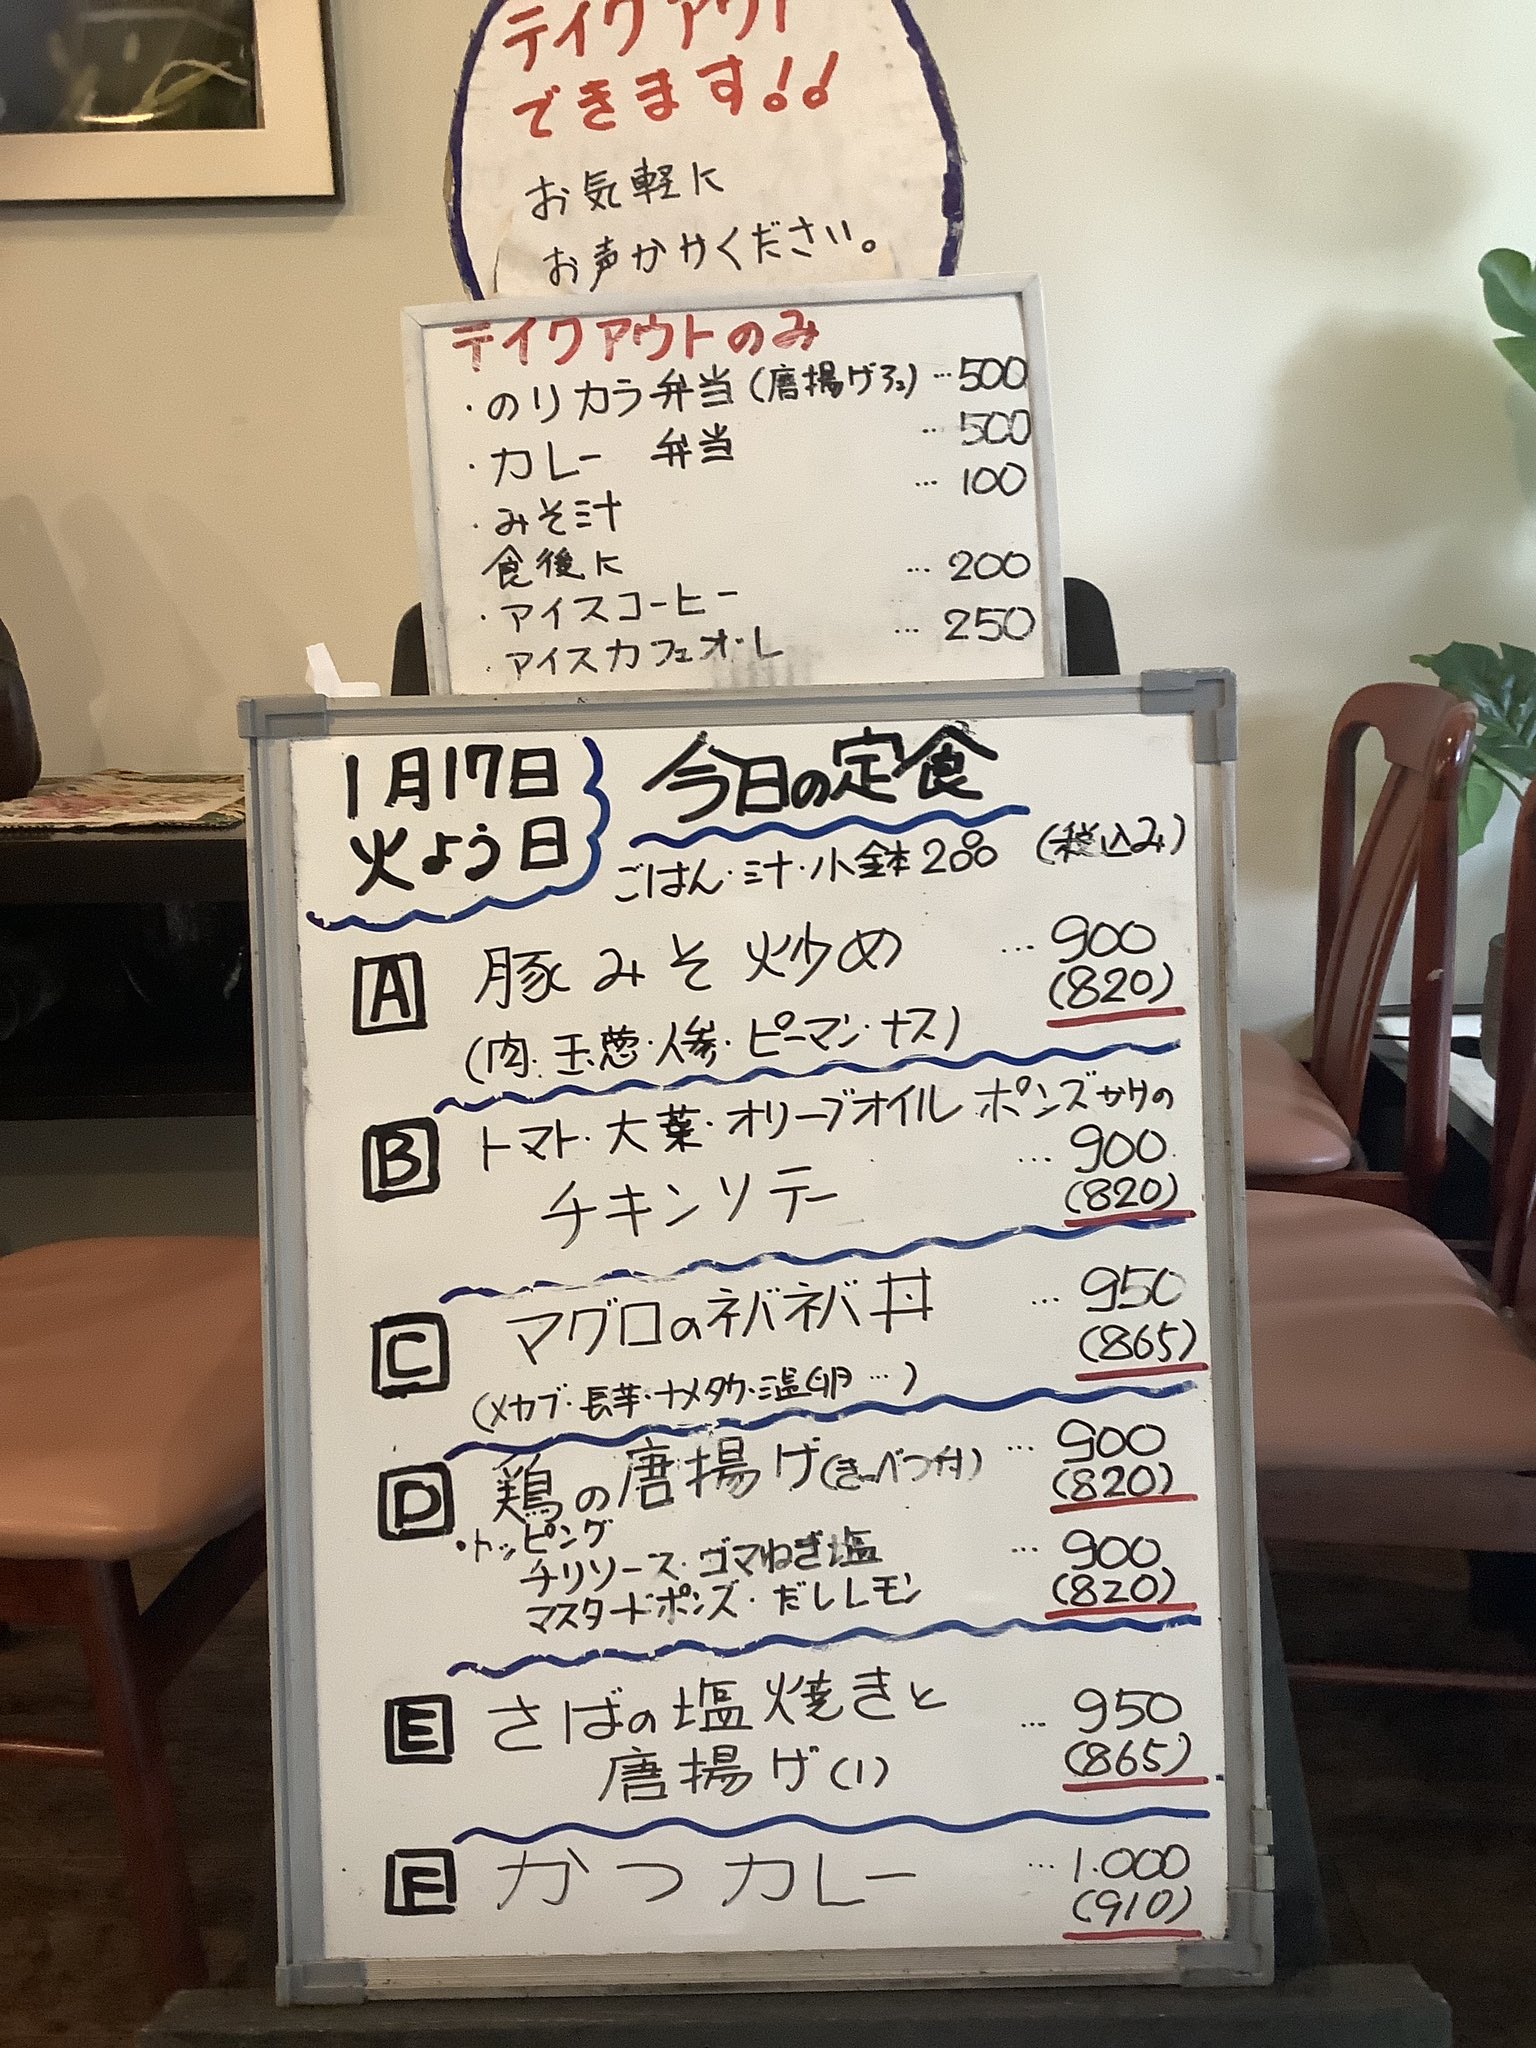 テイクアウト
できます!!
お気軽に
お声かけください。
テイクアウトのみ
・のりカラ弁当(唐揚げ2コ) …500
・カレー 弁当 …500
・みそ汁 …100
食後に
・アイスコーヒー …200
・アイスカフェオ・レ …250
1月17日
火よう日
今日の定食
ごはん・汁・小鉢2品 (税込み)
A 豚みそ炒め …900
(820)
(肉・玉葱・人参・ピーマン・ナス)
B トマト・大葉・オリーブオイル ポンズかけの
チキンソテー …900
(820)
C マグロのネバネバ丼 …950
(865)
(メカブ・長芋・ナメタケ・温卵…)
D 鶏の唐揚げ(きゃべつ付) …900
(820)
・トッピング
チリソース・ゴマねぎ塩 …900
マスタードポンズ・だしレモン (820)
E さばの塩焼きと …950
唐揚げ(1) (865)
F かつカレー …1.000
(910)